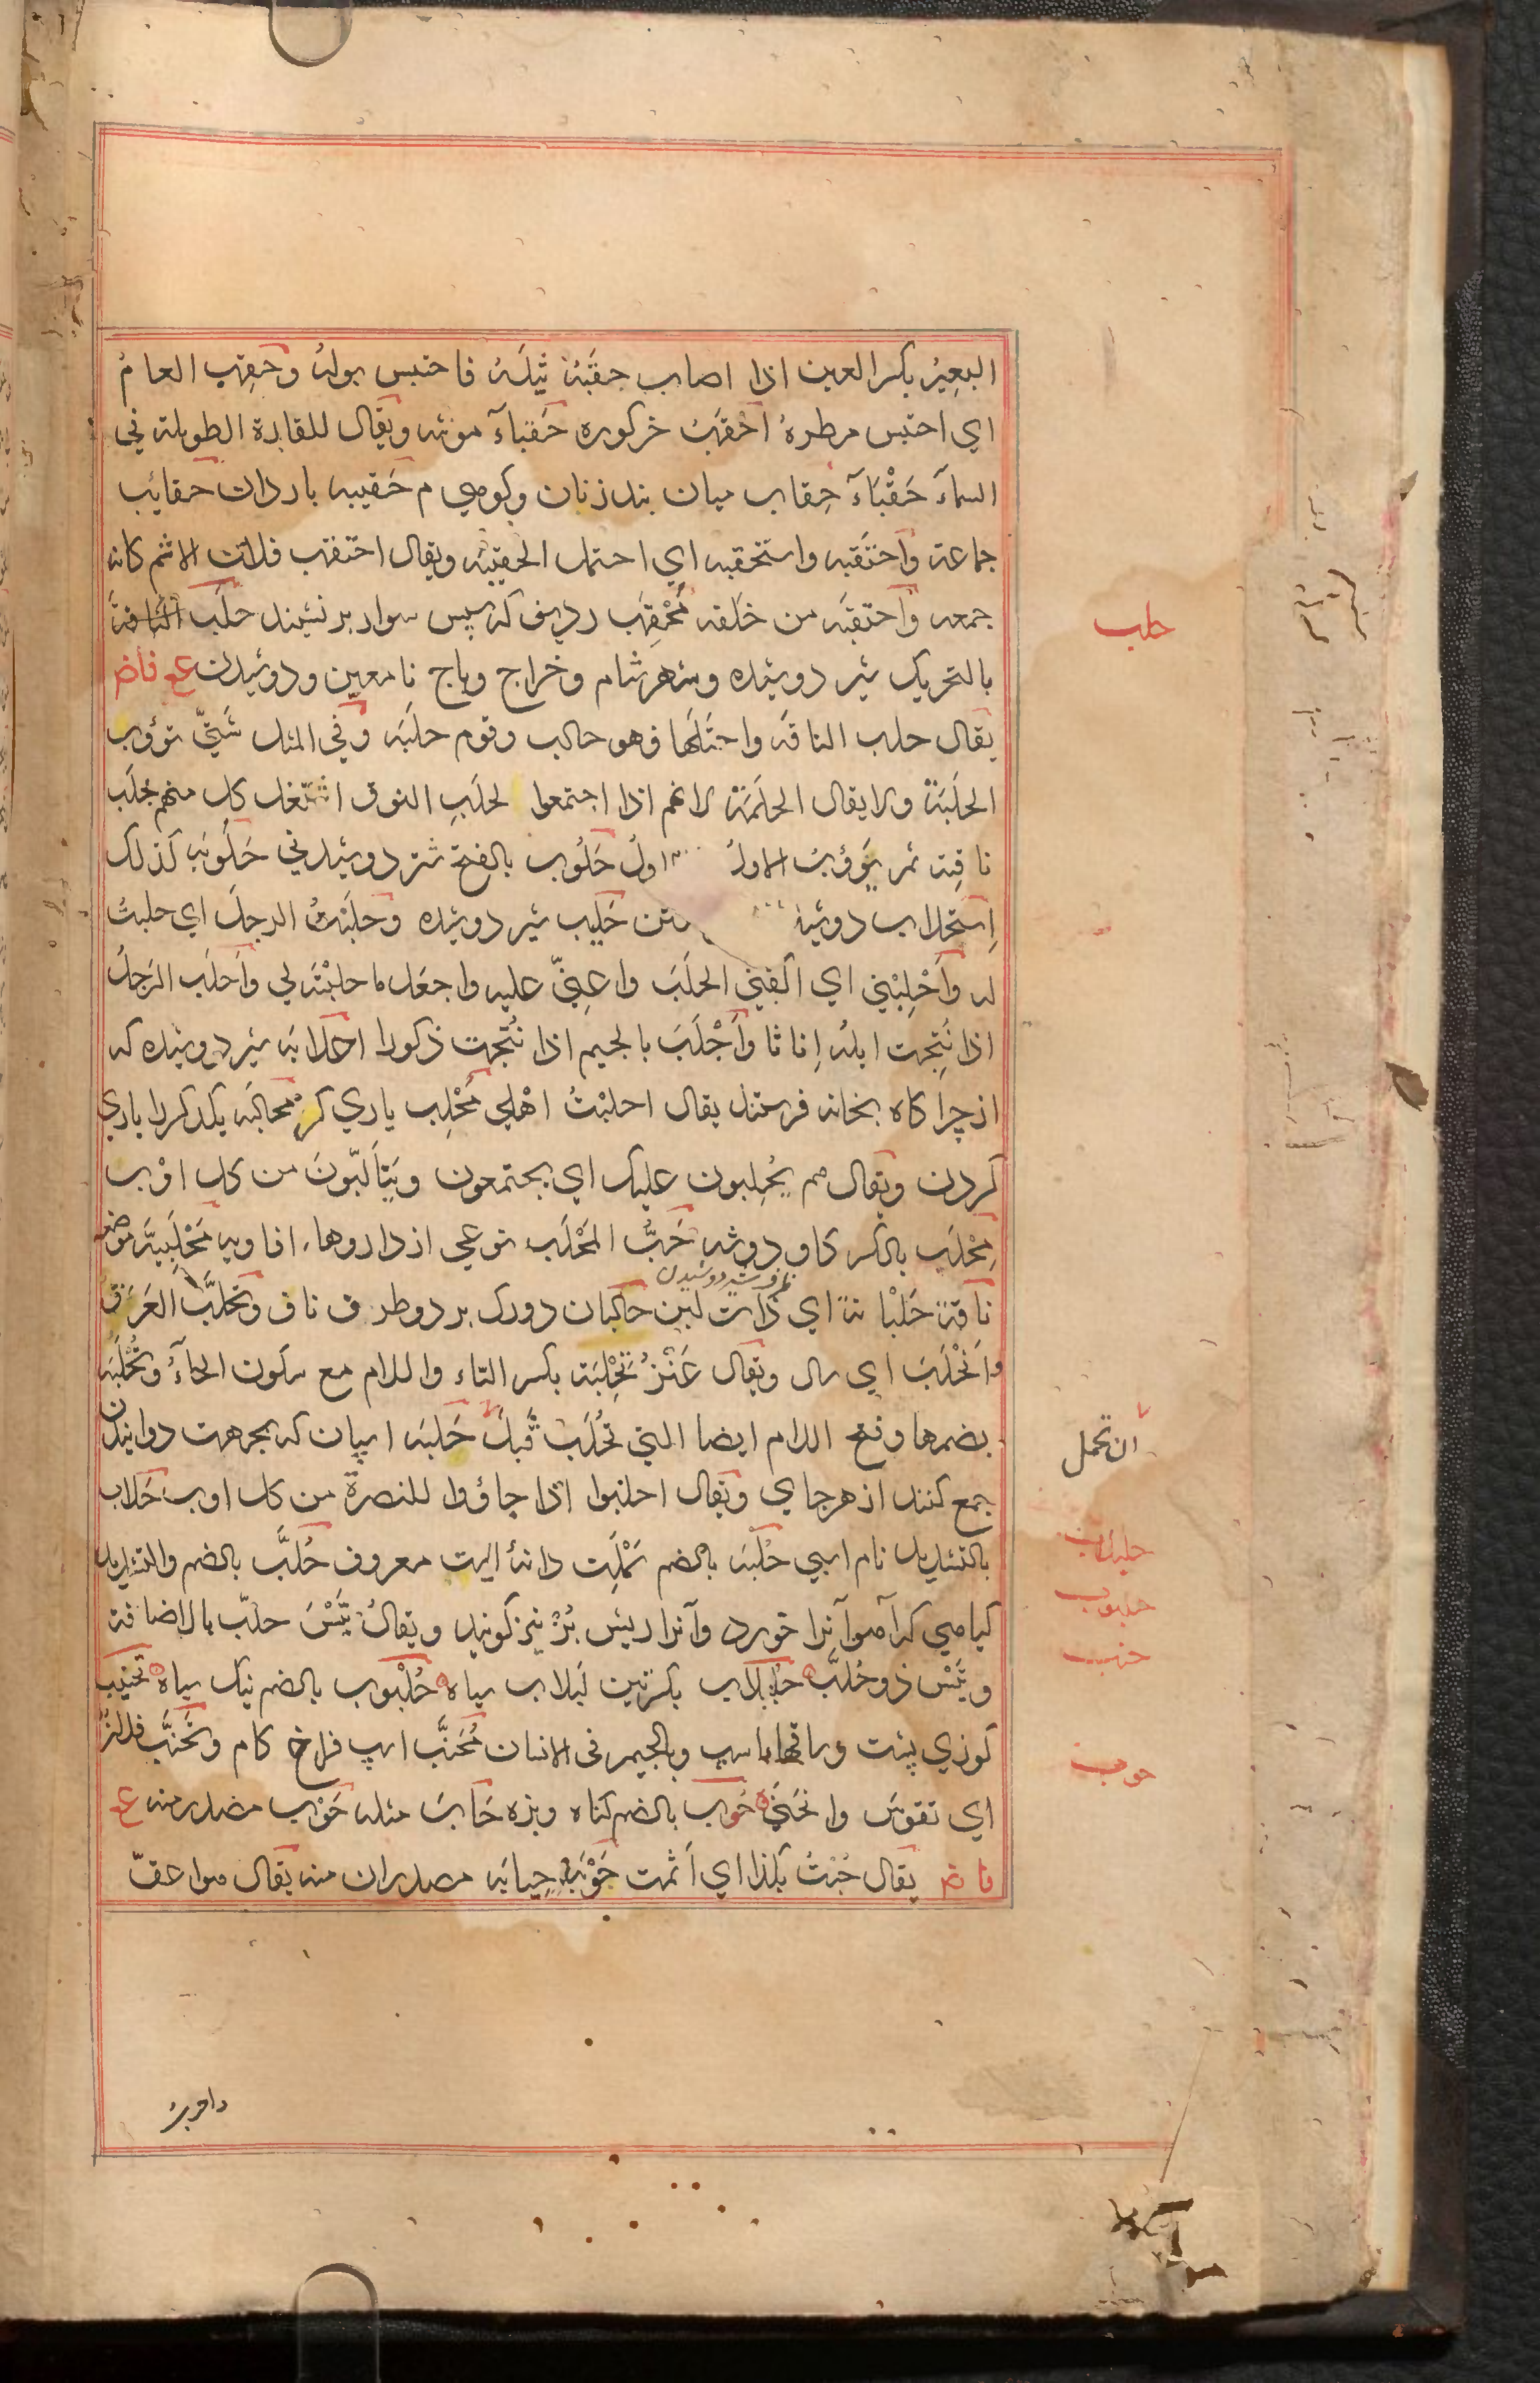 البعِيرُ بكسر العين اذا اصاب حقَبُهُ ثِيلَهُ فاحتبس بوله وحَقِبَ العامُ
اي احتبس مطرهُ اَحْقَبُ خر كوره حَقبَآءُ مؤنثه ويُقال للقارة الطويلة في
السمآءَ حَقْبَآءُ حِقاب ميان بند زنان وكوهي م حَقيبه باردان حقائِب
جماعة وَاحتَقَبه واستحقبه اي احتمل الحقيبَه ويقال احتقَبَ فلان الاثم كانه
جمعه وَاحتقَبَه من خلَفه مُحْقِب رديف كه سپس سوار برنشيند حلَب الناقة
بالتحريك شير دوشيده وشهر شام وخراج وباج نامعين ودوشيدن ع ف ا ض
يقال حلب الناقَه واحتَلَبَها فهو حالب وقوم حلَبَه وَفي المثل شَتّي تؤوب
الحلَبَةُ ولا يقال الحلَمَة لانهم اذا اجتمعوا لحلَبِ النوق اشتغل كل منهم بحلَب
ناقِته ثم يَؤوُبُ الاولُ اولُ حَلُوب بالفتح شتر دوشيدني حَلُوبَه كذلك
اِستحلاب دوشيد ستن حَليِب شير دوشيده وَحلَبْتُ الرجلَ اي حلبتُ
له وَاَحْلِبْني اي اكفِني الحلَبَ واعِنّي عليه واجعَل ما حلبْتَه لي وَاَحلَبَ الرَجلُ
اذا نُتِجت ابله اِناثا وَاَجْلَبَ بالجيم اذا نُتجت ذكورا احلابَه شير دوشيده كه
از چرا كاه بخانه فرستند يقال احلبْتُ اهْلي مُحْلِب ياري كر محالبَه يكديكر را ياري
كردن ويُقال هم يُحْلِبون عليك اي يجتمعون وَيَتَاَلّبونَ من كل اوْب
مِحْلَب بالكسر كاو دوشه حَبُّ المَحْلَب نوعي از داروها افاويه مَحْلَبيَّه موضع
ظرف شير دوشيدن
ناقة حَلْبانة اي ذات لبن حالبان دو رك بر دو طرف ناف وَتحَلَّبَ العَرَقُ
وَاَنْحْلَبَ اي سال ويُقال عَنْز تِحْلِبَة بكسر التاء واللام مع سكون الحآءُ وتُحْلُبَه
بضمها وفتح اللام ايضا التي تُحْلَب قَبلَ حَلبَه اسپان كه بجهت دوانيدن
جمع كنند از هر جاي ويُقال احلبوا اذا جاؤوا للنصرة من كل اوب حَلاب
بالتشديد نام اسپي حُلبَه بالضم شَمْلِت دانۀ ايست معروف حُلَّب بالضم والتشديد
كياهي كه آهو آنرا خورد وآنرا ريش بُز نيز كويند ويقالُ تَيْسَ حلّب بالاضافة
وتَيْس ذو حُلَّب حلبلاب بكسرتين لبَلاب سياه حُلْبوب بالضم نيك سياه تَحنيب
كوزي پشت وساقهاء اسپ وبالجيم في الانسان مُحَنَّب اسپ فراخ كام وتَحنَّب فلانٌ
اي تقوسَ وانحَنيَ حُوب بالضم كناه وبزه حَابَ مثله حَوْب مصدر منه ع
ف ا ض يقال حُبْتُ بكذا اي اَثمت حَوْبَه حِيابَه مصدران منه يقال هو اعقّ
حلب
ان تحمل
حلبلاب
حلبوب
حنب
حوب